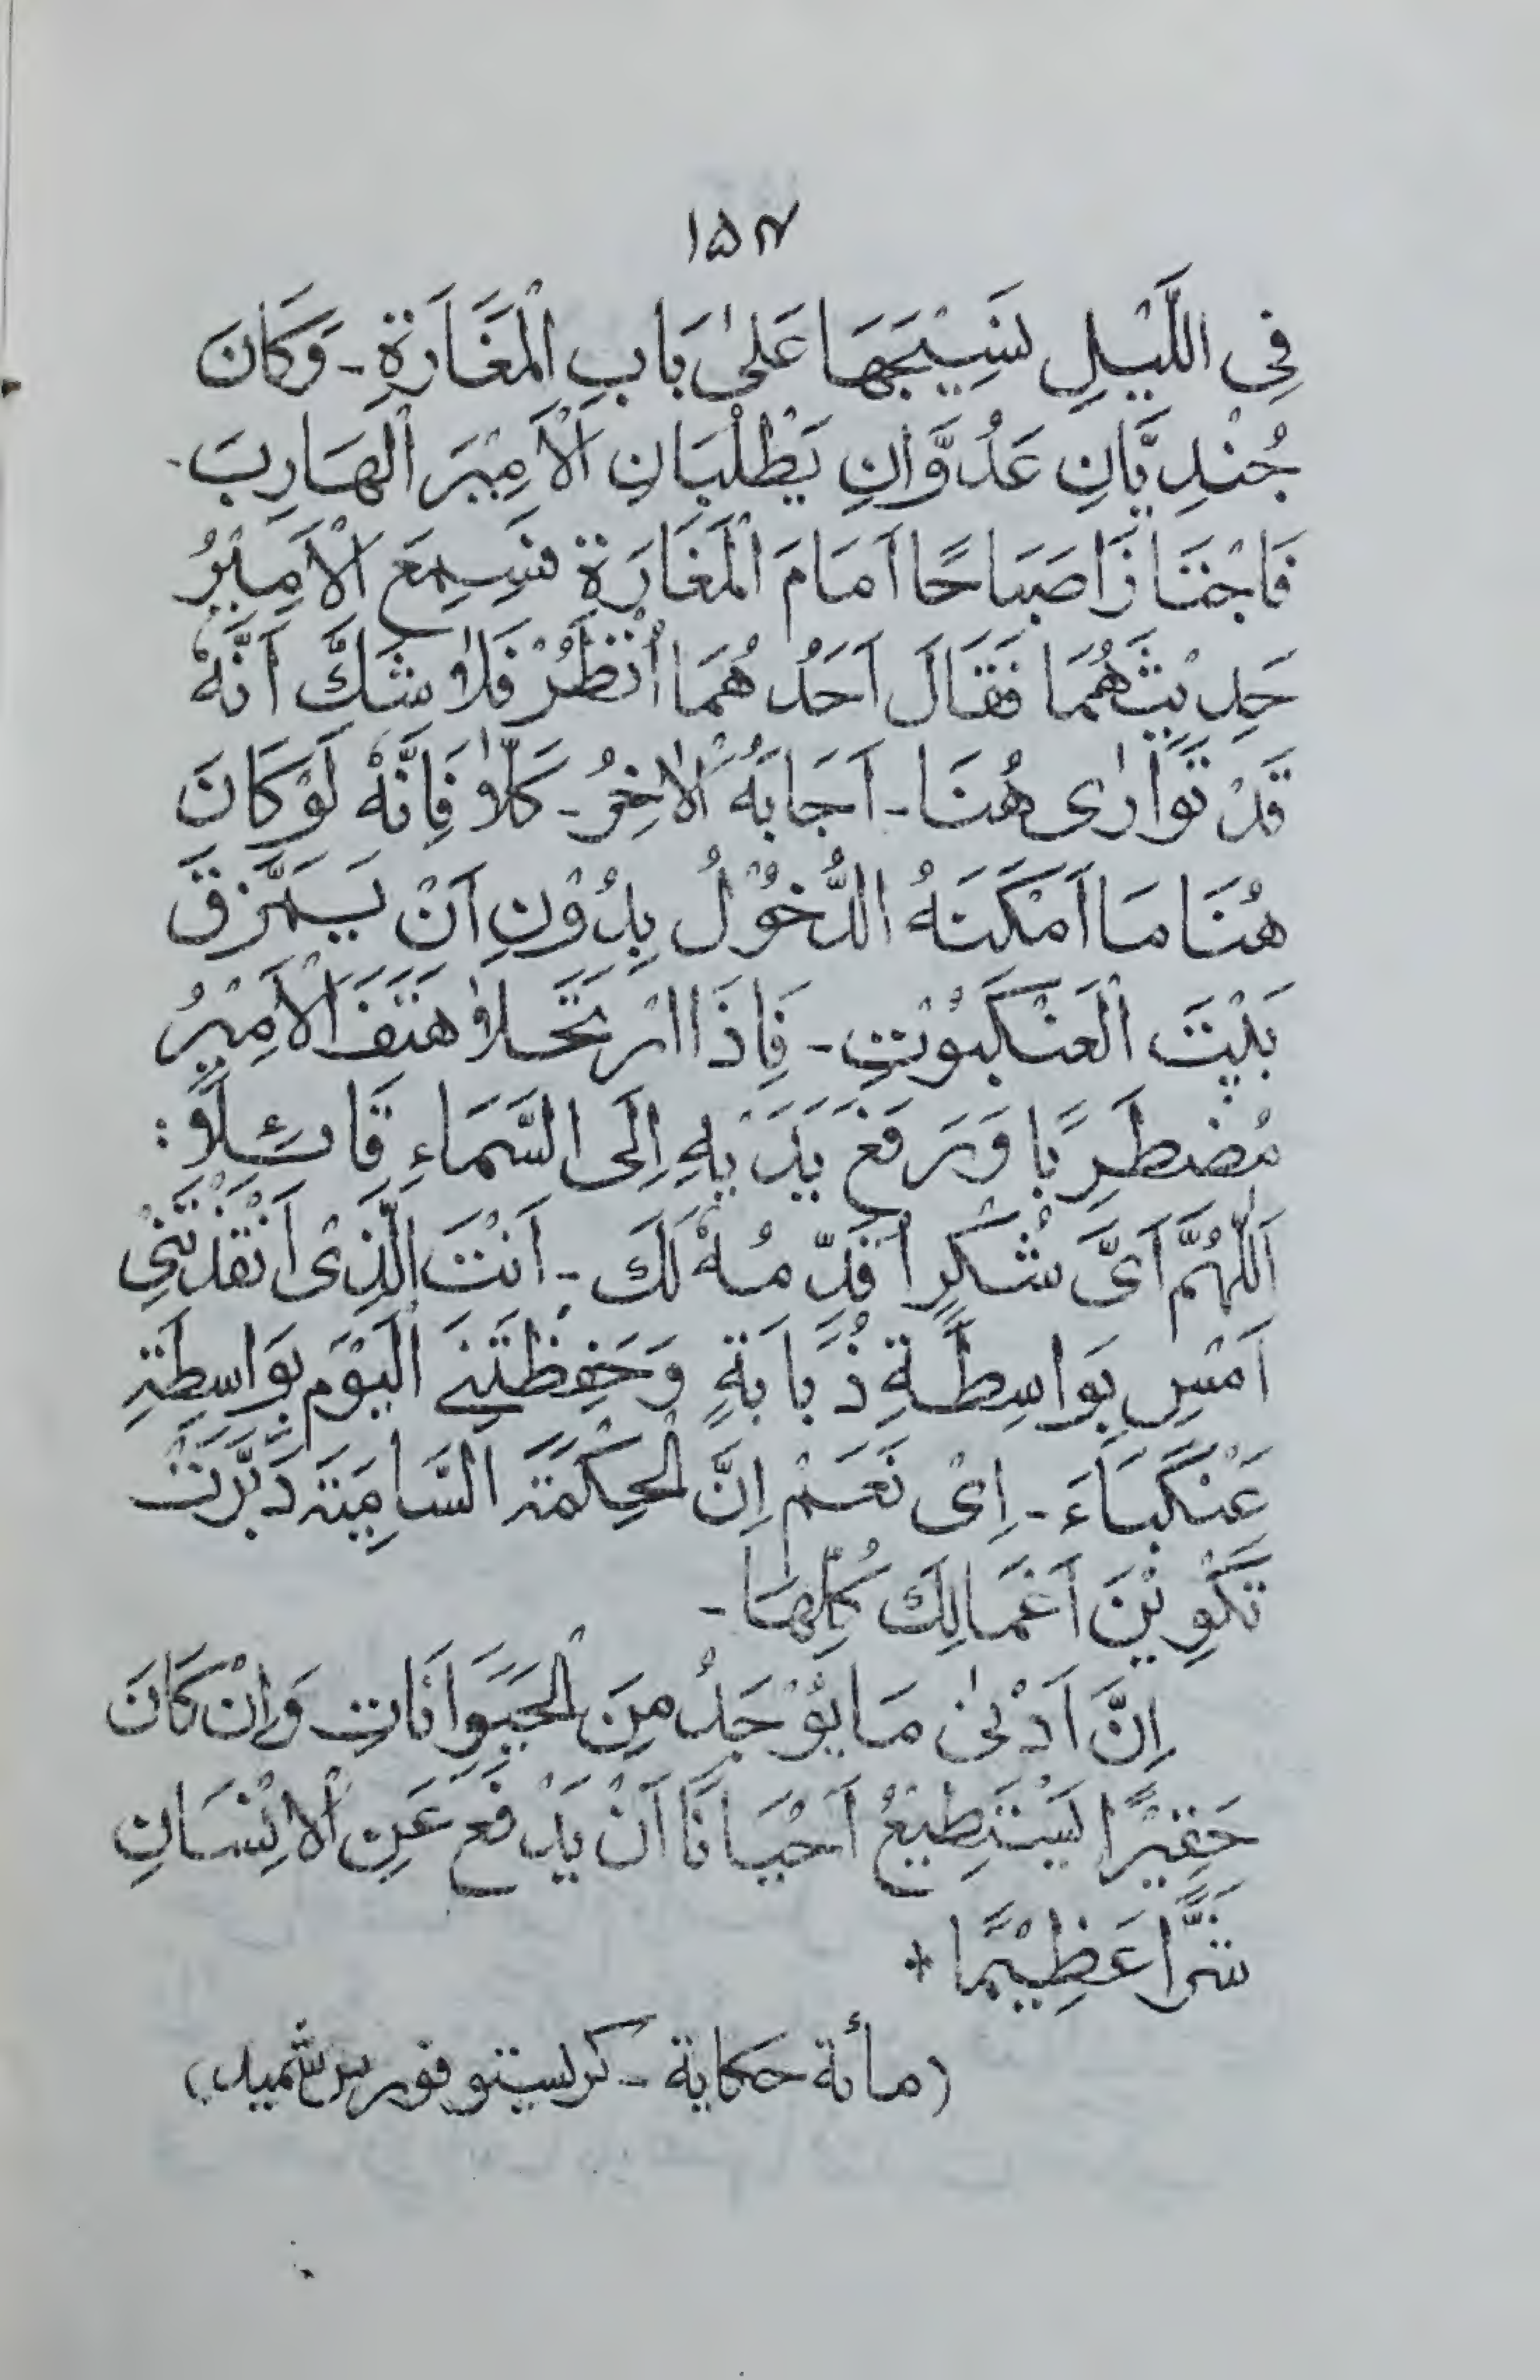 ۱۵۴
فِی اللَّیْلِ نَسِیْجَهَا عَلیٰ بَابِ الْمَغَارَةِ ۔ وَکَانَ
جُنْدِیَّانِ عَدُوَّانِ یَطْلُبَانِ الْاَمِیْرَ الْهَارِبَ ۔
فَاجْتَازَا صَبَاحًا اَمَامَ الْمَغَارَةِ فَسَمِعَ الْاَمِیْرُ
حَدِیْثَهُمَا فَقَالَ اَحَدُهُمَا اُنْظُرْ فَلَا شَكَّ اَنَّهٗ
قَدْ تَوَارٰی هُنَا ۔ اَجَابَهُ الْاٰخِرُ ۔ کَلَّا فَاِنَّهٗ لَوْ کَانَ
هُنَا مَا اَمْکَنَهُ الدُّخُوْلُ بِدُوْنِ اَنْ یَتَمَزَّقَ
بَیْتَ الْعَنْکَبُوْتِ ۔ فَاِذَا ارْتَحَلَا هَتَفَ الْاَمِیْرُ
مُضْطَرِبًا وَرَفَعَ یَدَیْهِ اِلَی السَّمَاءِ قَائِلًا :
اَللّٰهُمَّ اَیَّ شُکْرٍ اُقَدِّمُهٗ لَكَ ۔ اَنْتَ الَّذِیْ اَنْقَذْتَنِیْ
اَمْسِ بِوَاسِطَةِ ذُبَابَةٍ وَحَفِظْتَنِے الْیَوْمَ بِوَاسِطَةِ
عَنْکَبَاءَ ۔ اِیْ نَعَمْ اِنَّ الْحِکْمَةَ السَّامِیَةَ دَبَّرَتْ
تَکْوِیْنَ اَعْمَالِكَ کُلِّهَا ۔
اِنَّ اَدْنیٰ مَا یُوْجَدُ مِنَ الْحَیَوَانَاتِ وَاِنْ کَانَ
حَقِیْرًا یَسْتَطِیْعُ اَحْیَانًا اَنْ یَدْفَعَ عَنِ الْاِنْسَانِ
شَرًّا عَظِیْمًا +
(مأئة حکایة ۔ کریستوفورس شمید)